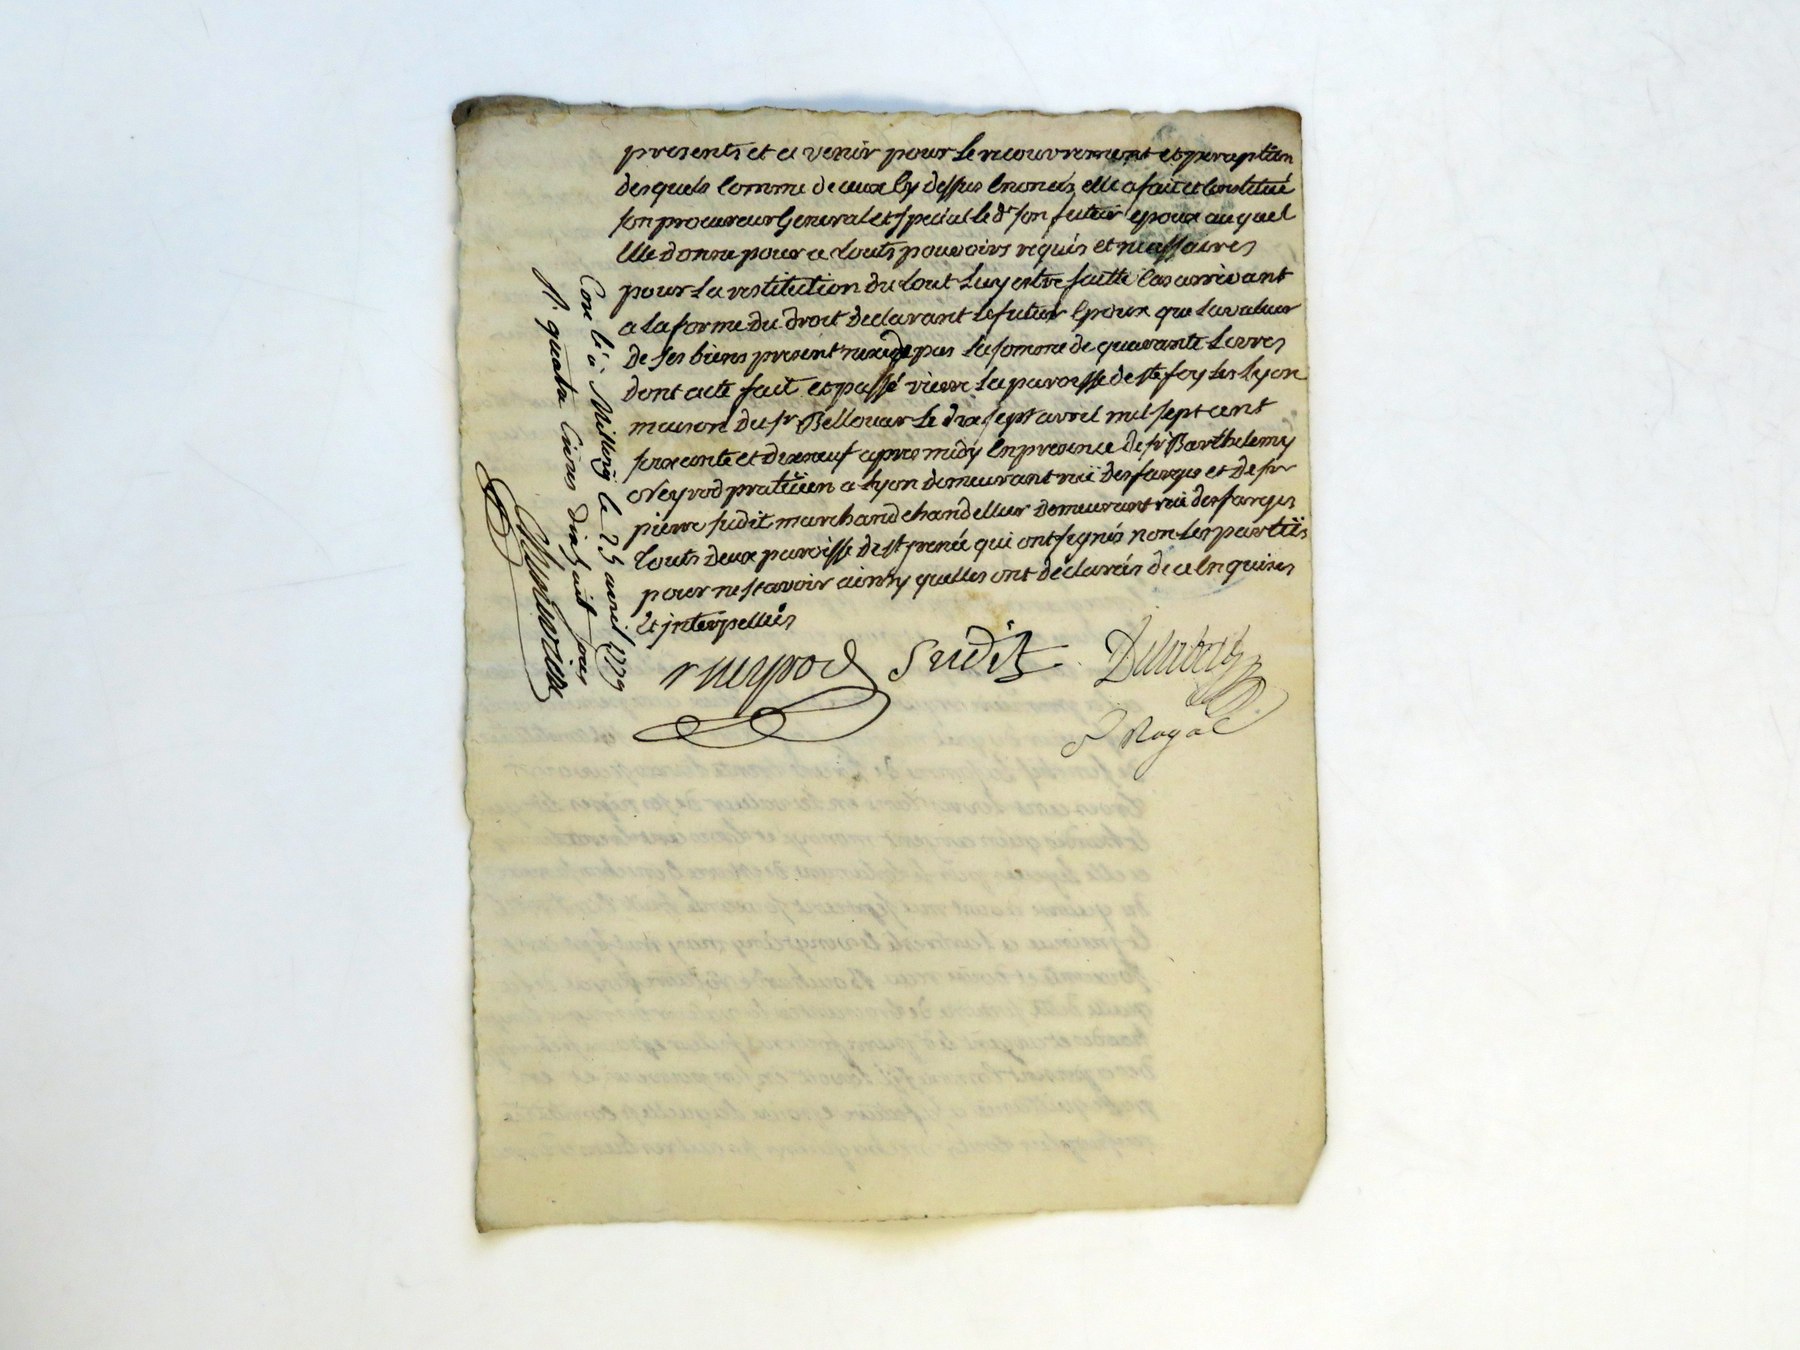 presents et a venir pour le recouvrement et perception
desquels comme de ceux cy dessus enoncés elle a fait et constitué
son procureur general et special le dt son futur epoux auquel
elle donne pour ce touts pouvoirs requis et necessaires
pour la restitution du tout luy estre faitte cas arrivant
a la forme du droit declarant le futur epoux que la valeur
de ses biens present pas la somme de quarante livres
dont acte fait et passé riere la paroisse de ste foy les lyon
maison du sr Bellouar le dix sept avril mil sept cent
soixante et dixneuf apres midy en presence de sr Barthelemy
Neyrod praticien a lyon demeurant rüe des farges et de sr
pierre sudit marchand chandellier demeurant rüe des farges
touts deux paroisse de st jrenée qui ont signés non les partiës
pour ne scavoir ainsy quelles ont declarés de ce enquises
et jnterpellées
neyrod Sudit
N Royal
Con lé à le 25 avril 1779
R. quatre livres dix huit sous